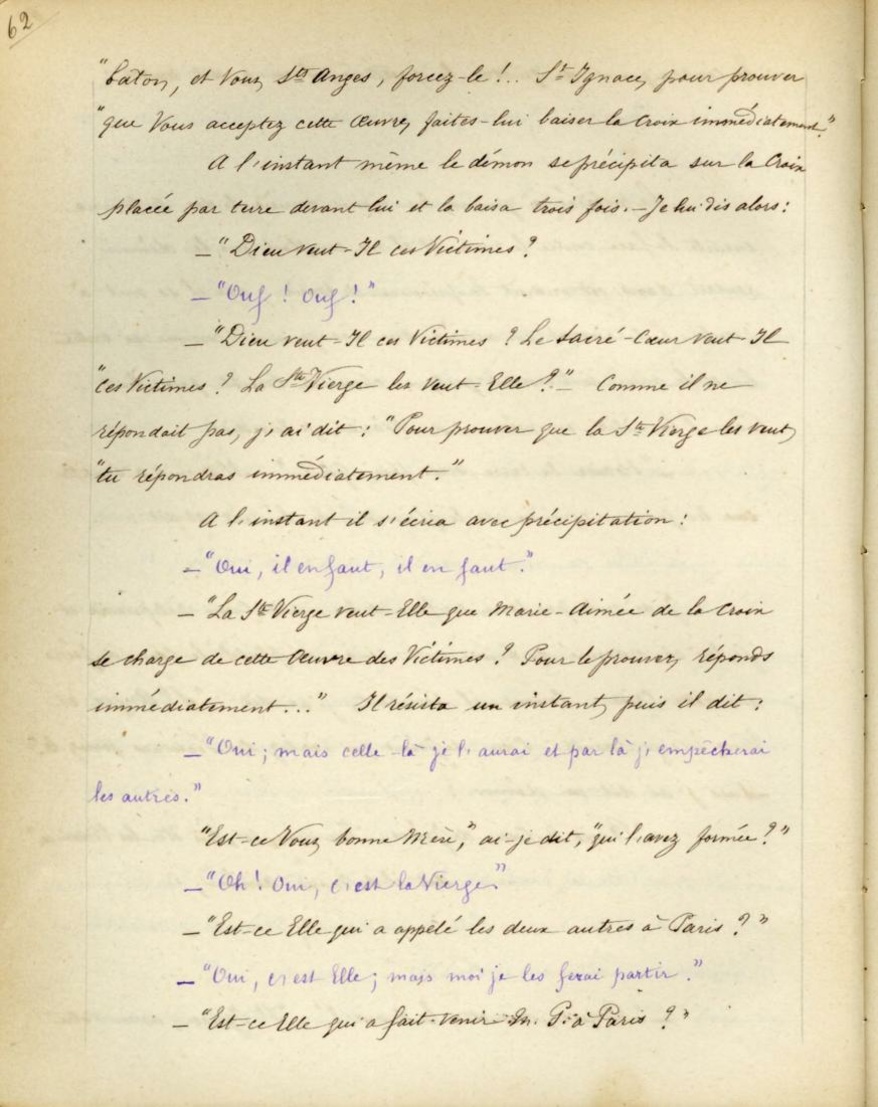 62
"bâton, et Vous, Sts Anges, forcez-le !.. St Ignace, pour prouver
"que Vous acceptez cette Œuvre, faites-lui baiser la Croix immédiatement."
A l'instant même le démon se précipita sur la Croix
placée par terre devant lui et la baisa trois fois. — Je lui dis alors :
— "Dieu veut-Il ces Victimes ?
— "Ouf ! Ouf !"
— "Dieu veut-Il ces Victimes ? Le Sacré-Cœur veut-Il
"ces Victimes ? La Ste Vierge les veut-Elle ?" — Comme il ne
répondait pas, j'ai dit : "Pour prouver que la Ste Vierge les veut,
"tu répondras immédiatement."
A l'instant il s'écria avec précipitation :
— "Oui, il en faut, il en faut."
— "La Ste Vierge veut-Elle que Marie-Aimée de la Croix
se charge de cette Œuvre des Victimes ? Pour le prouver, réponds
immédiatement..." Il résista un instant, puis il dit :
— "Oui ; mais celle-là je l'aurai et par là j'empêcherai
les autres."
"Est-ce Vous, bonne Mère," ai-je dit, "qui l'avez formée ?"
— "Oh ! Oui, c'est la Vierge."
— "Est-ce Elle qui a appelé les deux autres à Paris ?"
— "Oui, c'est Elle ; mais moi je les ferai partir."
— "Est-ce Elle qui a fait venir M. P. à Paris ?"